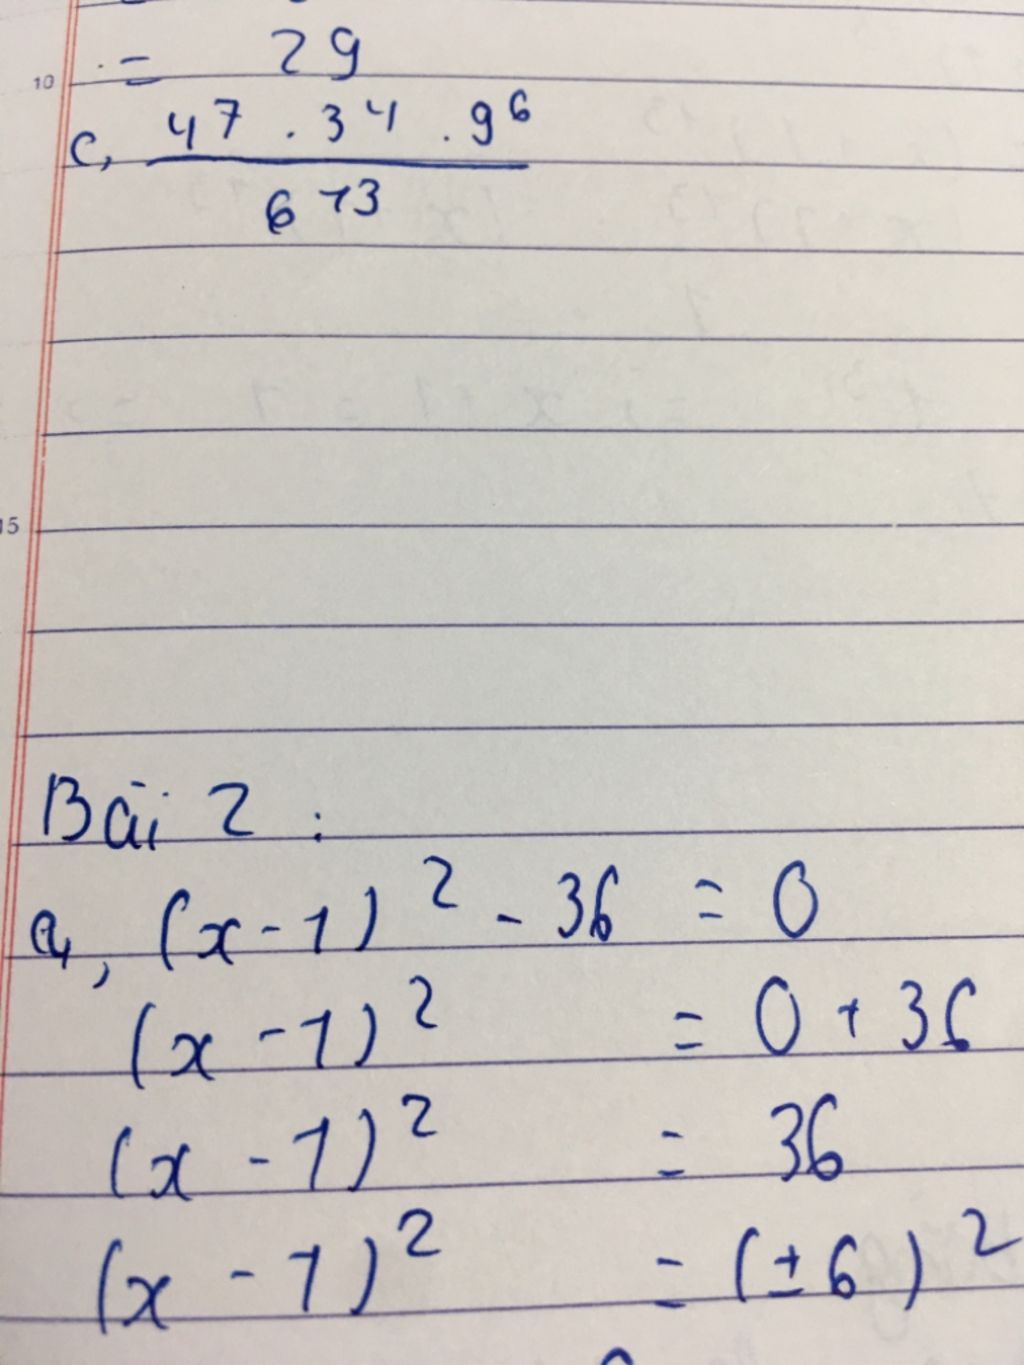 = 29
c, 4^7 . 3^4 . 9^6
6^13
Bài 2 :
a, (x - 1)^2 - 36 = 0
(x - 1)^2 = 0 + 36
(x - 1)^2 = 36
(x - 1)^2 = (± 6)^2
10
15